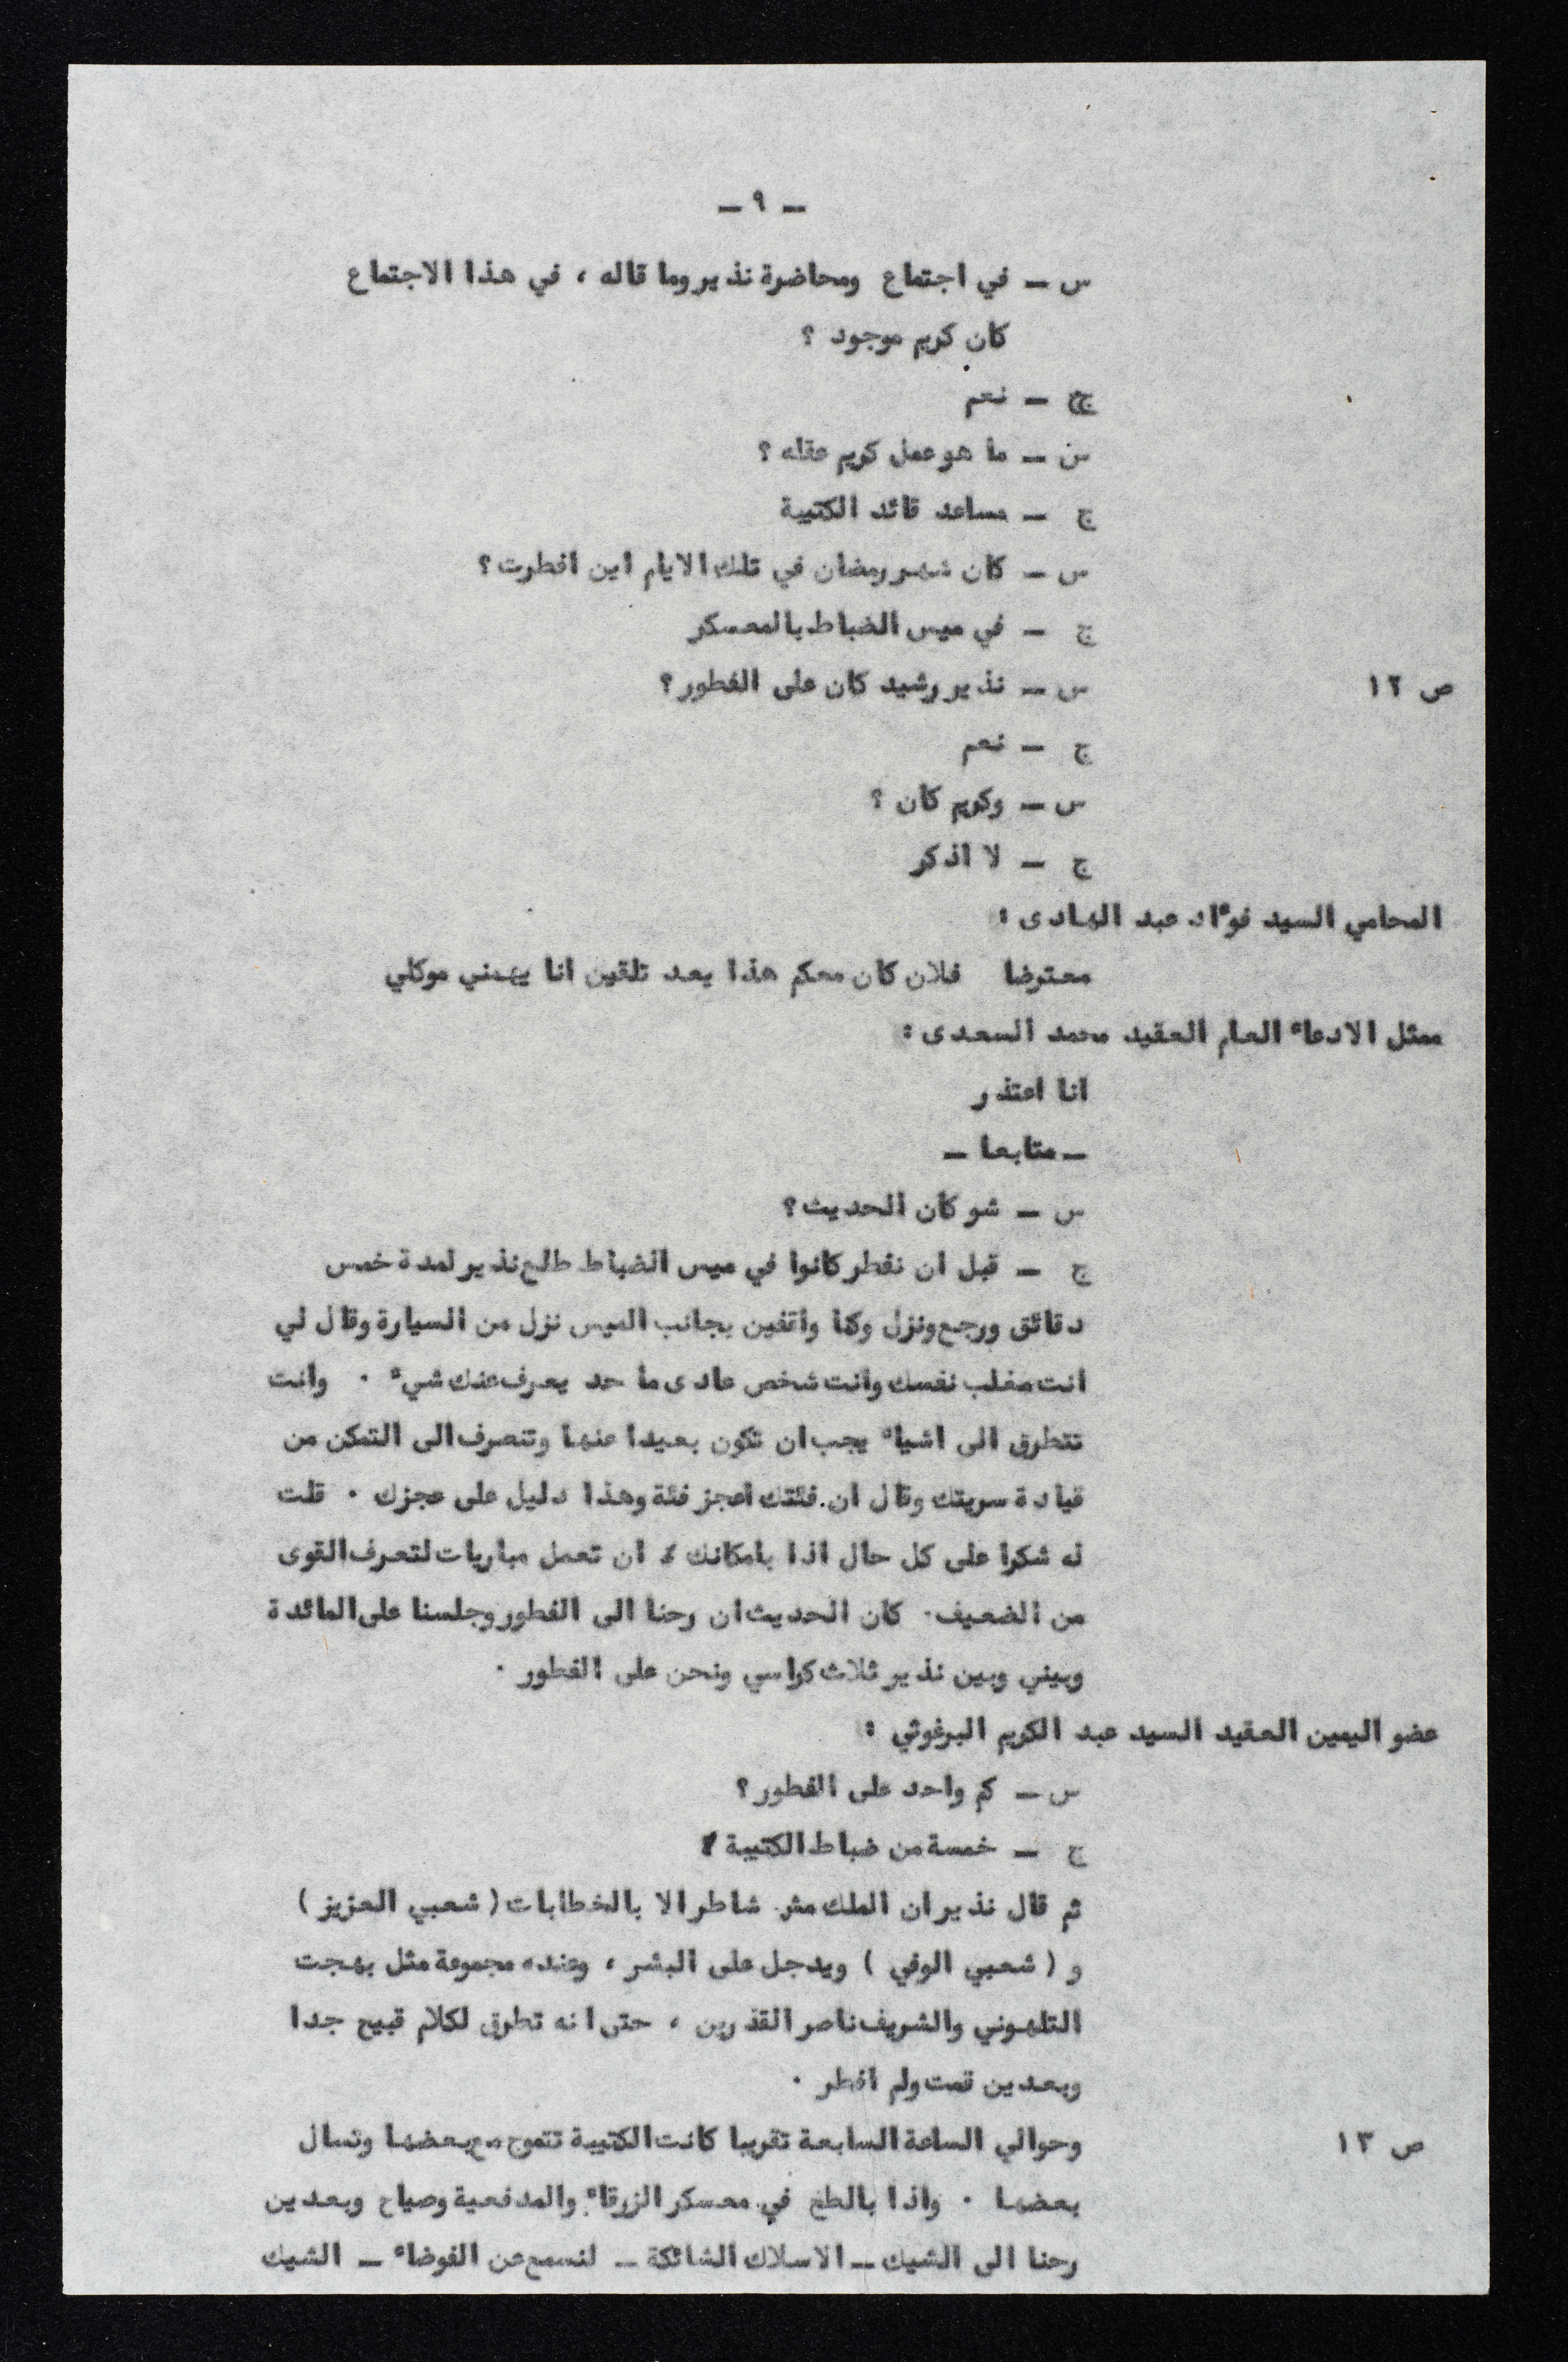 ــ ٩ ــ
س ــ في اجتماع ومحاضرة نذير وما قاله ، في هذا الاجتماع
كان كريم موجود ؟
ج ــ نعم
س ــ ما هو عمل كريم عقله ؟
ج ــ مساعد قائد الكتيبة
س ــ كان شهر رمضان في تلك الايام اين افطرت ؟
ج ــ في ميس الضباط بالمعسكر
ص ١٢ س ــ نذير رشيد كان على الفطور ؟
ج ــ نعم
س ــ وكريم كان ؟
ج ــ لا اذكر
المحامي السيد فوءاد عبد الهادى :
معترضا فلان كان معكم هذا يعد تلقين انا يهمني موكلي
ممثل الادعاء العام العقيد محمد السعدى :
انا اعتذر
ــ متابعا ــ
س ــ شو كان الحديث ؟
ج ــ قبل ان نفطر كانوا في ميس الضباط طلع نذير لمدة خمس
دقائق ورجع ونزل وكنا واقفين بجانب الميس نزل من السيارة وقال لي
انت مغلب نفسك وانت شخص عادى ما حد يعرف عنك شيء . وانت
تتطرق الى اشياء يجب ان تكون بعيدا عنها وتنصرف الى التمكن من
قيادة سريتك وقال ان فئتك اعجز فئة وهذا دليل على عجزك . قلت
له شكرا على كل حال اذا بامكانك ان تعمل مباريات لتعرف القوى
من الضعيف . كان الحديث ان رحنا الى الفطور وجلسنا على المائدة
وبيني وبين نذير ثلاث كراسي ونحن على الفطور .
عضو اليمين العقيد السيد عبد الكريم البرغوثي :
س ــ كم واحد على الفطور ؟
ج ــ خمسة من ضباط الكتيبة
ثم قال نذير ان الملك مش شاطر الا بالخطابات ( شعبي العزيز )
و ( شعبي الوفي ) ويدجل على البشر ، وعنده مجموعة مثل بهجت
التلهوني والشريف ناصر القذرين ، حتى انه تطرق لكلام قبيح جدا
وبعدين قمت ولم افطر .
ص ١٣ وحوالي الساعة السابعة تقريبا كانت الكتيبة تتموج مع بعضها وتسال
بعضها . واذا بالطخ في معسكر الزرقاء والمدفعية وصياح وبعدين
رحنا الى الشيك ــ الاسلاك الشائكة ــ لنسمع عن الفوضاء ــ الشيك